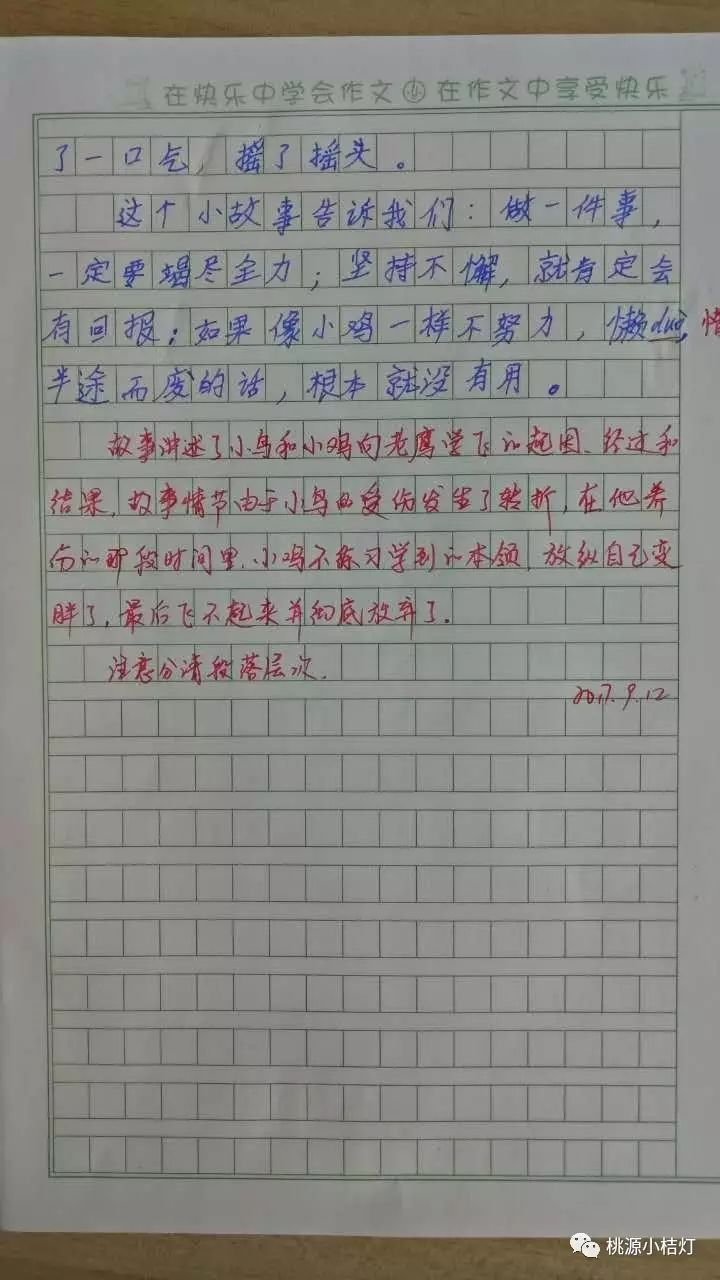 在快乐中学会作文 在作文中享受快乐
了一口气，摇了摇头。
这个小故事告诉我们：做一件事，
一定要竭尽全力；坚持不懈，就肯定会
有回报；如果像小鸡一样不努力，懒duò，惰
半途而废的话，根本就没有用。
故事讲述了小鸟和小鸡向老鹰学飞的起因、经过和
结果，故事情节由于小鸟的受伤发生了转折，在他养
伤的那段时间里，小鸡不练习学到的本领，放纵自己变
胖了，最后飞不起来并彻底放弃了。
注意分清段落层次。
2017.9.12
桃源小桔灯